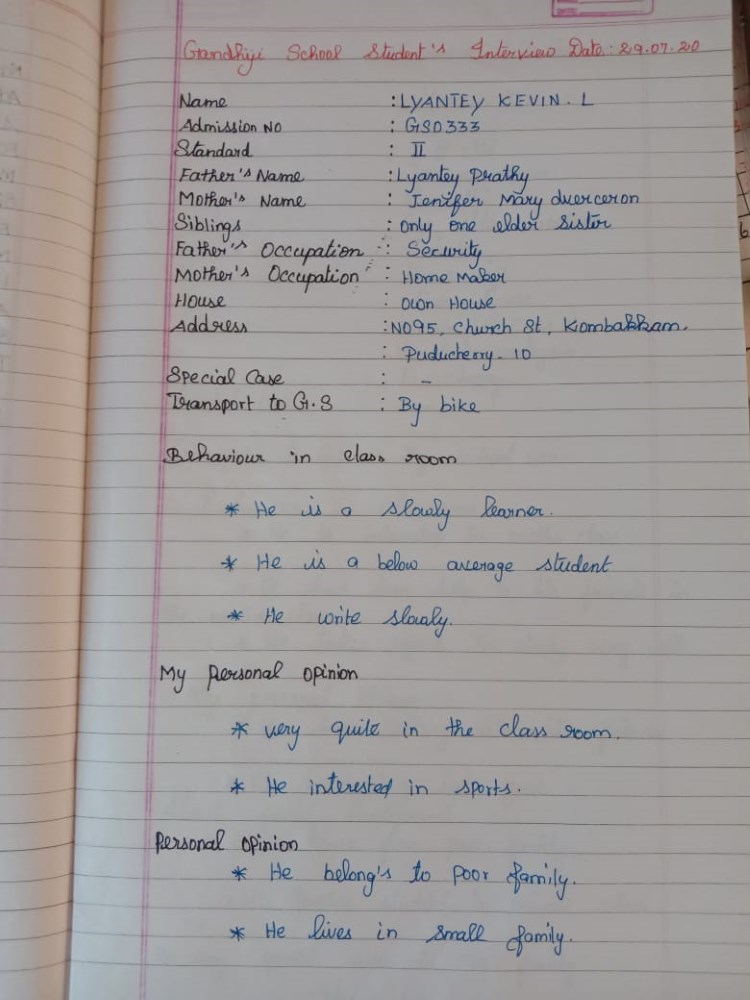 Gandhiji School Student's Interview Date: 29.07.20
Name : LYANTEY KEVIN. L
Admission No : GSD333
Standard : II
Father's Name : Lyantey Prathy
Mother's Name : Jenifer Mary duerceron
Siblings : only one elder Sister
Father's Occupation : Security
Mother's Occupation : Home Maker
House : Own House
Address : NO95, Church St, Kombakkam.
: Puducherry. 10
Special Case : -
Transport to G.S : By bike
Behaviour in class room
* He is a slowly learner.
* He is a below average student
* He write slowly.
My personal opinion
* very quite in the class room.
* He interested in sports.
Personal opinion
* He belong's to poor family.
* He lives in small family.